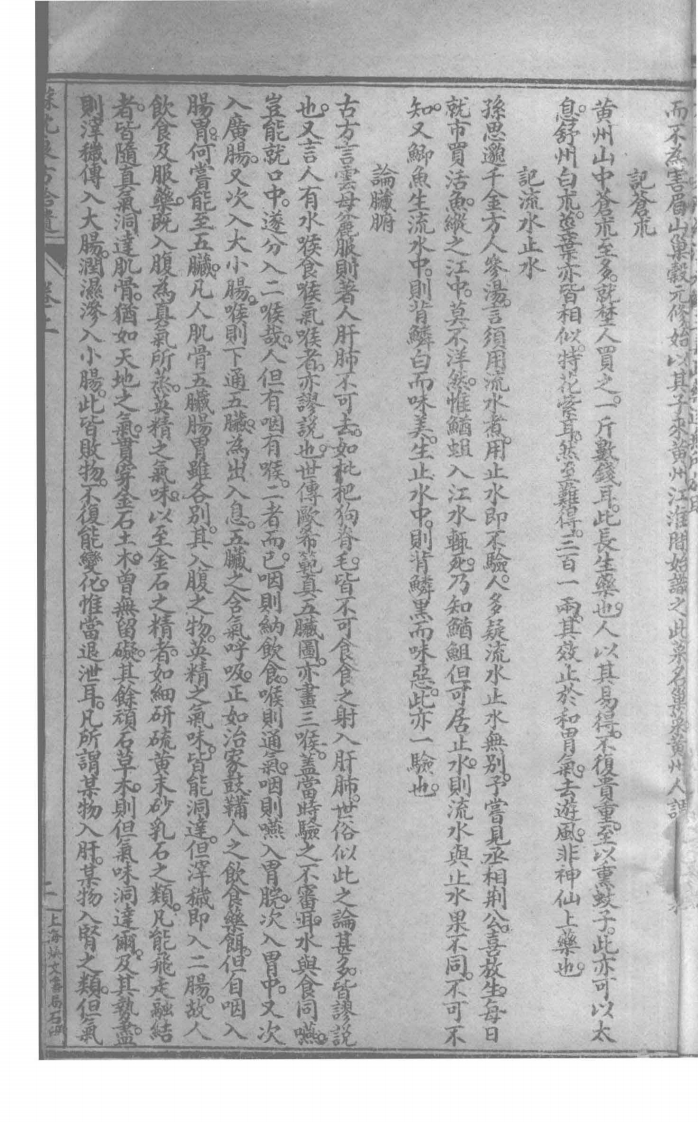 而不為害眉山巢穀元修始以其子來黃州江淮間始識之此菜名巢菜黃州人謂
記蒼朮
黃州山中蒼朮至多就埜人買之一斤數錢耳此長生藥也人以其易得不復貴重至以熏蚊子此亦可以太
息舒州白朮莖葉亦皆相似特花紫耳然至難得三百一兩其效止於和胃氣去遊風非神仙上藥也
記流水止水
孫思邈千金方人參湯言須用流水煮用止水即不驗人多疑流水止水無別予嘗見丞相荆公喜放生每日
就市買活魚縱之江中莫不洋然惟鰌䱇入江水輒死乃知鰌䱇但可居止水則流水與止水果不同不可不
知又鯽魚生流水中則背鱗白而味美生止水中則背鱗黑而味惡此亦一驗也
論臟腑
古方言雲母麄服則著人肝肺不可去如枇杷狗脊毛皆不可食食之射入肝肺世俗似此之論甚多皆謬說
也又言人有水喉食喉氣喉者亦謬說也世傳歐希範真五臟圖亦畫三喉蓋當時驗之不審耳水與食同嚥
豈能就口中遂分入二喉哉人但有咽有喉二者而已咽則納飲食喉則通氣咽則嚥入胃脘次入胃中又次
入廣腸又次入大小腸喉則下通五臟為出入息五臟之含氣呼吸正如治家鼓鞴人之飲食藥餌但自咽入
腸胃何嘗能至五臟凡人肌骨五臟腸胃雖各別其入腹之物英精之氣味皆能洞達但滓穢即入二腸故人
飲食及服藥既入腹為真氣所蒸英精之氣味以至金石之精者如細研硫黃朱砂乳石之類凡能飛走融結
者皆隨真氣洞達肌骨猶如天地之氣貫穿金石土木曾無留礙其餘頑石草木則但氣味洞達爾及其勢盡
則滓穢傳入大腸潤濕滲入小腸此皆敗物不復能變化惟當退泄耳凡所謂某物入肝某物入腎之類但氣
蘇沈良方拾遺 卷上
二
上海煥文書局石印